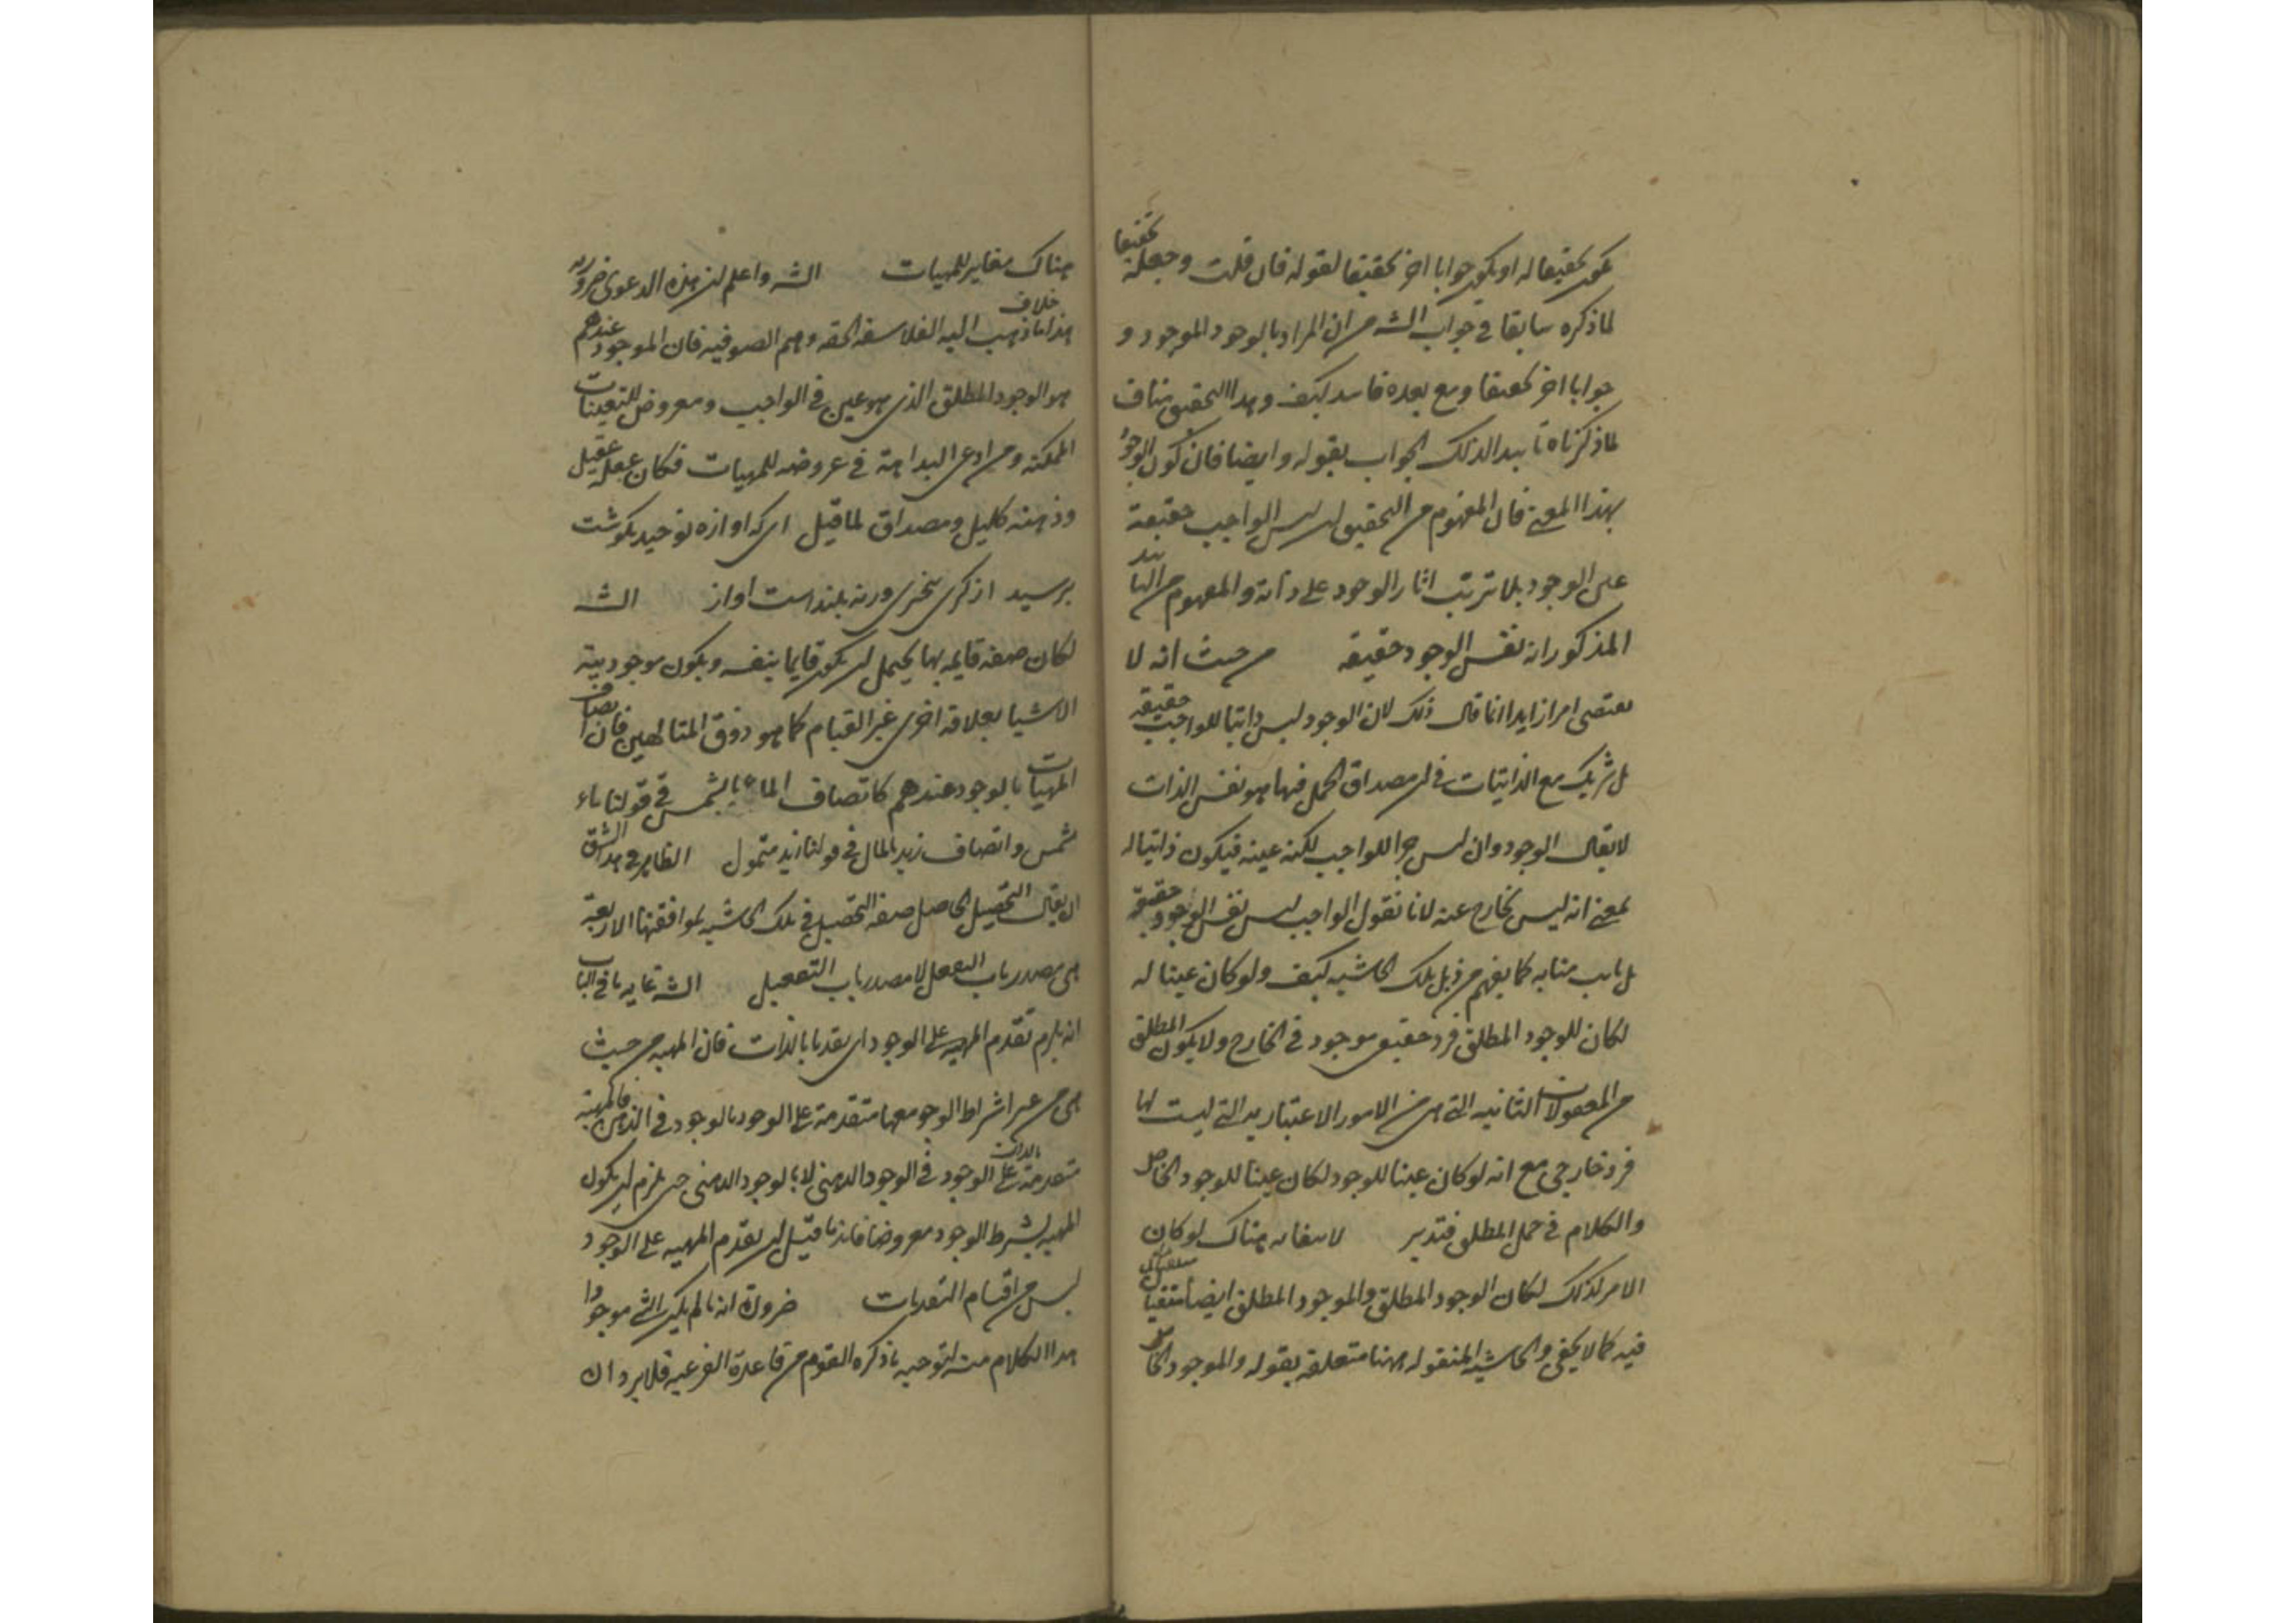 يكون تحقيقا له او يكون جوابا اخر تحقيقا لقوله فان قلت وجعله تحقيقا
لما ذكره سابقا في جواب الشه من ان المراد بالوجود الموجود و
جوابا اخر تحقيقا ومع بعده فاسد كيف وهذا التحقيق مناف
لما ذكرناه تاييدا لذلك الجواب بقوله وايضا فان كون الوجود
بهذا المعنى فان المفهوم من التحقيق ان ليس الواجب حقيقة
عين الوجود بل ترتب اثار الوجود على ذاته والمفهوم من التاييد
المذكور انه نفس الوجود حقيقه من حيث انه لا
يقتضى امرا زايدا انما قال ذلك لان الوجود ليس ذاتيا للواجب حقيقه
بل شريك مع الذاتيات في ان مصداق الحمل فيها هو نفس الذات
لا يقال الوجود وان ليس جزا للواجب لكنه عينه فيكون ذاتيا له
بمعنى انه ليس بخارج عنه لانا نقول الواجب ليس نفس الوجود حقيقة
بل نايب منابه كما يفهم من ذيل تلك الحاشيه كيف ولو كان عينا له
لكان للوجود المطلق فرد حقيقى موجود في الخارج ولا يكون المطلق
من المعقولات الثانيه التى هى من الامور الاعتباريه التى ليست لها
فرد خارجى مع انه لو كان عينا للوجود لكان عينا للوجود الخاص
والكلام في حمل المطلق فتدبر لا يقال هناك لو كان
الامر كذلك لكان الوجود المطلق والموجود المطلق ايضا منتفيا
فيه كما لا يخفى والحاشيه المنقوله ههنا متعلقه بقوله والموجود الخاص
هناك مغاير للمهيات الشه واعلم ان هذه الدعوى ضروريه
هذا خلاف ما ذهب اليه الفلاسفه الحقه وهم الصوفيه فان الموجود عندهم
هو الوجود المطلق الذى هو عين في الواجب ومعروض للتعينات
الممكنه ومن ادعى البداهة في عروضه للمهيات فكان عقله عقيل
وذهنه كليل ومصداق لما قيل اى كه اوازه توحيد بكوشت
نرسيد از كرى بخرى ورنه بلند است اواز الشه
لكان صفه قايمه بها يحتمل ان يكون قايما بنفسه ويكون موجودية
الاشيا بعلاقه اخرى غير القيام كما هو ذوق المتالهين فان اتصاف
المهيات بالوجود عندهم كاتصاف الماء بالشمس في قولنا ماء
شمس واتصاف زيد بالمال في قولنا زيد متمول الظاهر في هذا الشق
ان يقال التحصيل الحاصل صفه التحصيل في تلك الحاشيه لموافقتها الاربعة
هى مصدر باب التفعل لا مصدر باب التفعيل الشه غايه ما في الباب
انه يلزم تقدم المهيه على الوجود اى تقدما بالذات فان المهيه من حيث
هى من غير اشراط الوجود معها متقدمة على الوجود بالوجود في الذهن فالمهية
متقدمة بالذات على الوجود في الوجود الذهنى لا بالوجود الذهنى حتى يلزم ان يكون
المهيه بشرط الوجود معروضا فاندفع ما قيل ان تقدم المهيه على الوجود
ليس من اقسام التقدمات ضرورة انه ما لم يكن الشى موجودا
هذا الكلام منه لتوجيه ما ذكره القوم من قاعدة الفرعيه فلا يرد ان